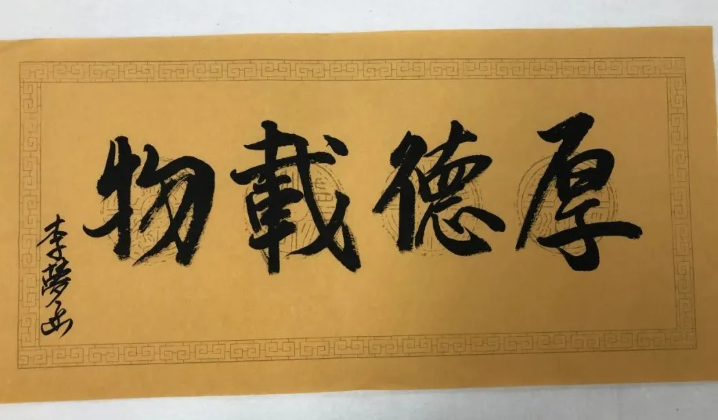 厚德載物
李夢安